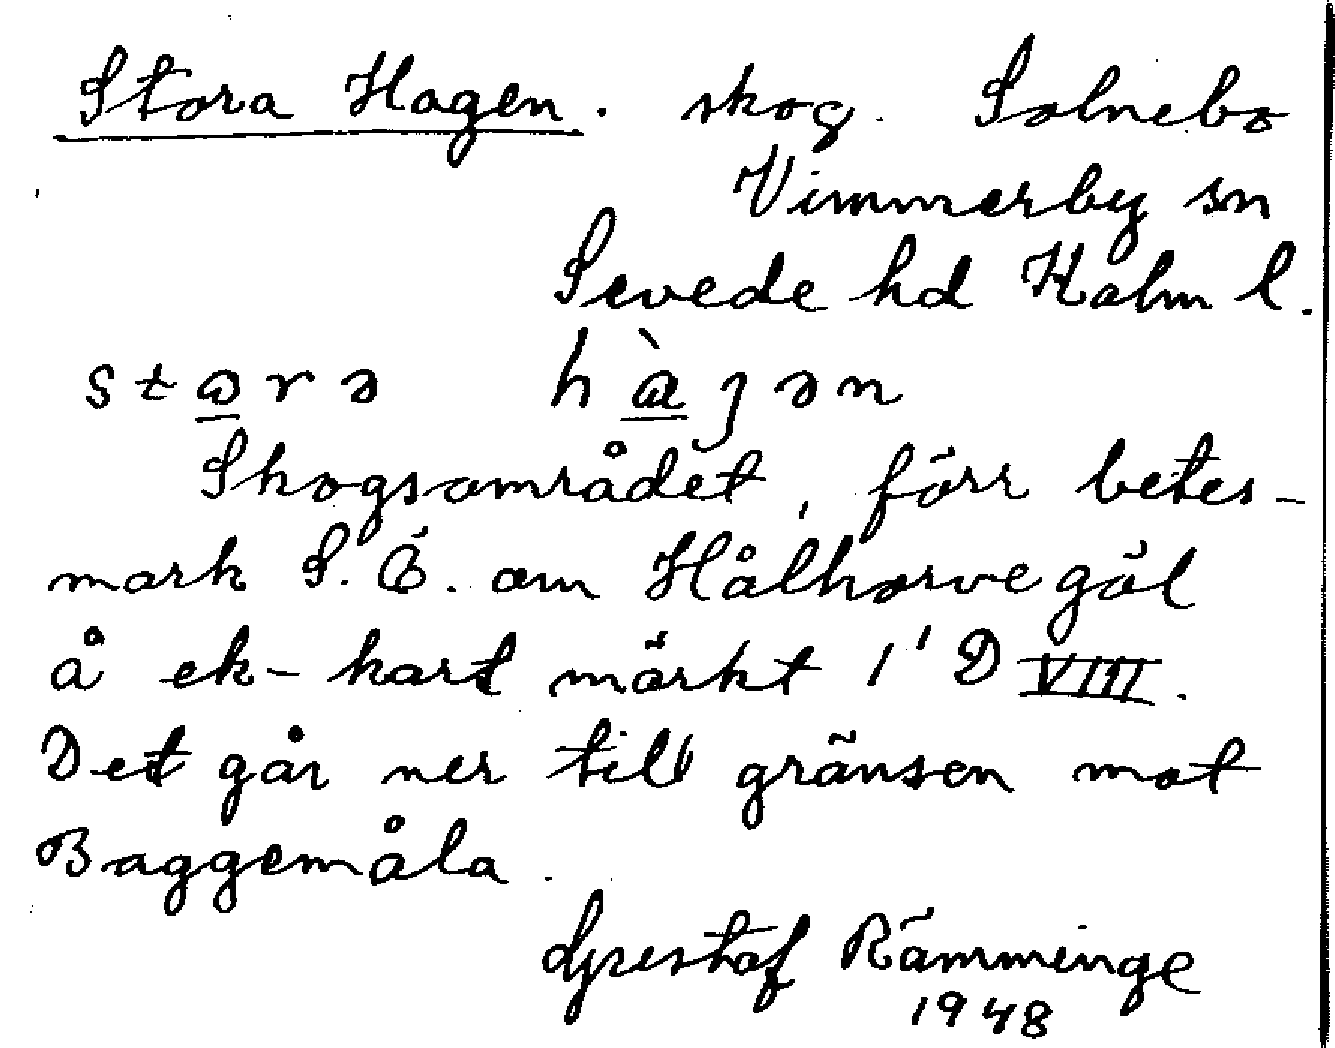 Stora Hagen. skog. Solnebo
Vimmerby sn
Sevede hd Kalm l.
storə hàgən
Skogsområdet, förr betes-
mark S.Ö. om Hålkorvegöl
å ek-kart märkt 1' D VIII.
Det går ner till gränsen mot
Baggemåla.
Gustaf Rämminge
1948